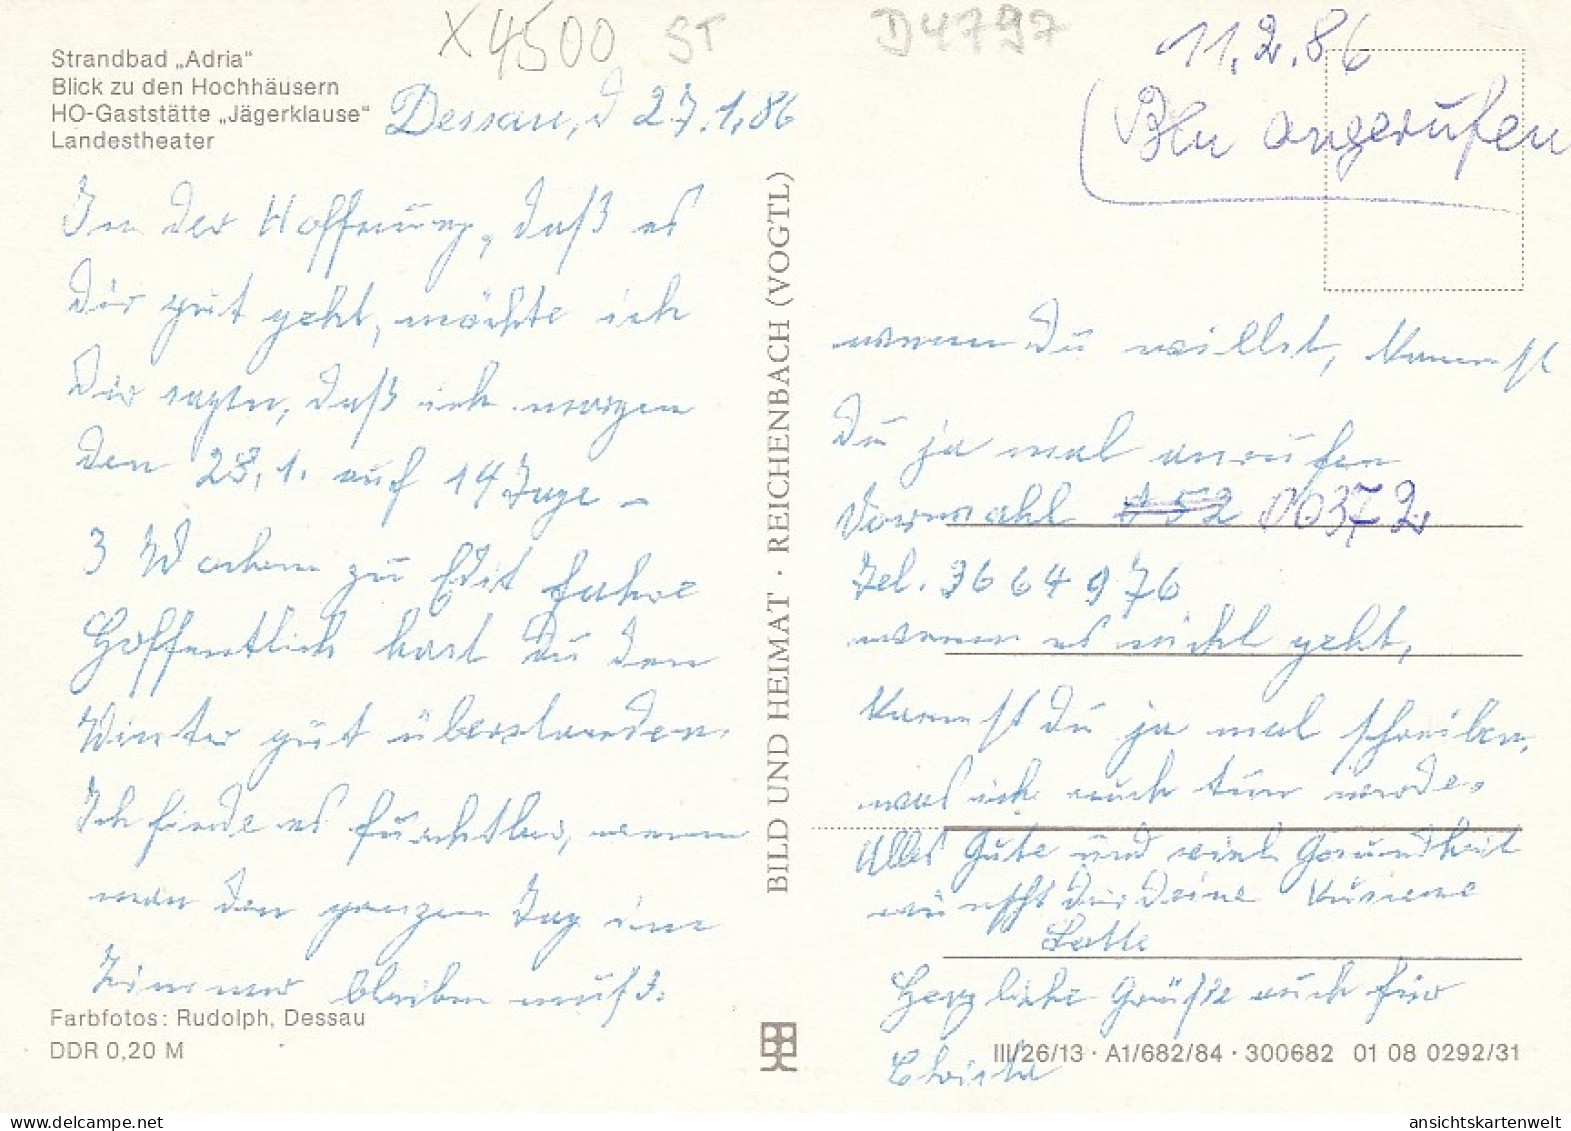 X4500 ST
D4797
11.2.86
Strandbad „Adria“
Blick zu den Hochhäusern
HO-Gaststätte „Jägerklause“
Landestheater
Dessau, d 27.1.86
(Bln angerufen
In der Hoffnung, daß es
Dir gut geht, möchte ich
Dir sagen, daß ich morgen
den 28.1. auf 14 Tage –
3 Wochen zu Edit fahre
Hoffentlich hast Du den
Winter gut überstanden.
Ich finde es furchtbar, wenn
man den ganzen Tag im
Zimmer bleiben muß.
Farbfotos: Rudolph, Dessau
DDR 0,20 M
BILD UND HEIMAT · REICHENBACH (VOGTL)
wenn Du willst, kannst
Du ja mal anrufen
Vorwahl 00372
Tel. 3664976
wenn es nicht geht,
kannst Du ja mal schreiben,
was ich auch tun werde.
Alles Gute und viel Gesundheit
wünscht Dir Deine Kusine
Lotte
Herzliche Grüße auch für
Christa
III/26/13 · A1/682/84 · 300682 01 08 0292/31
ansichtskartenwelt